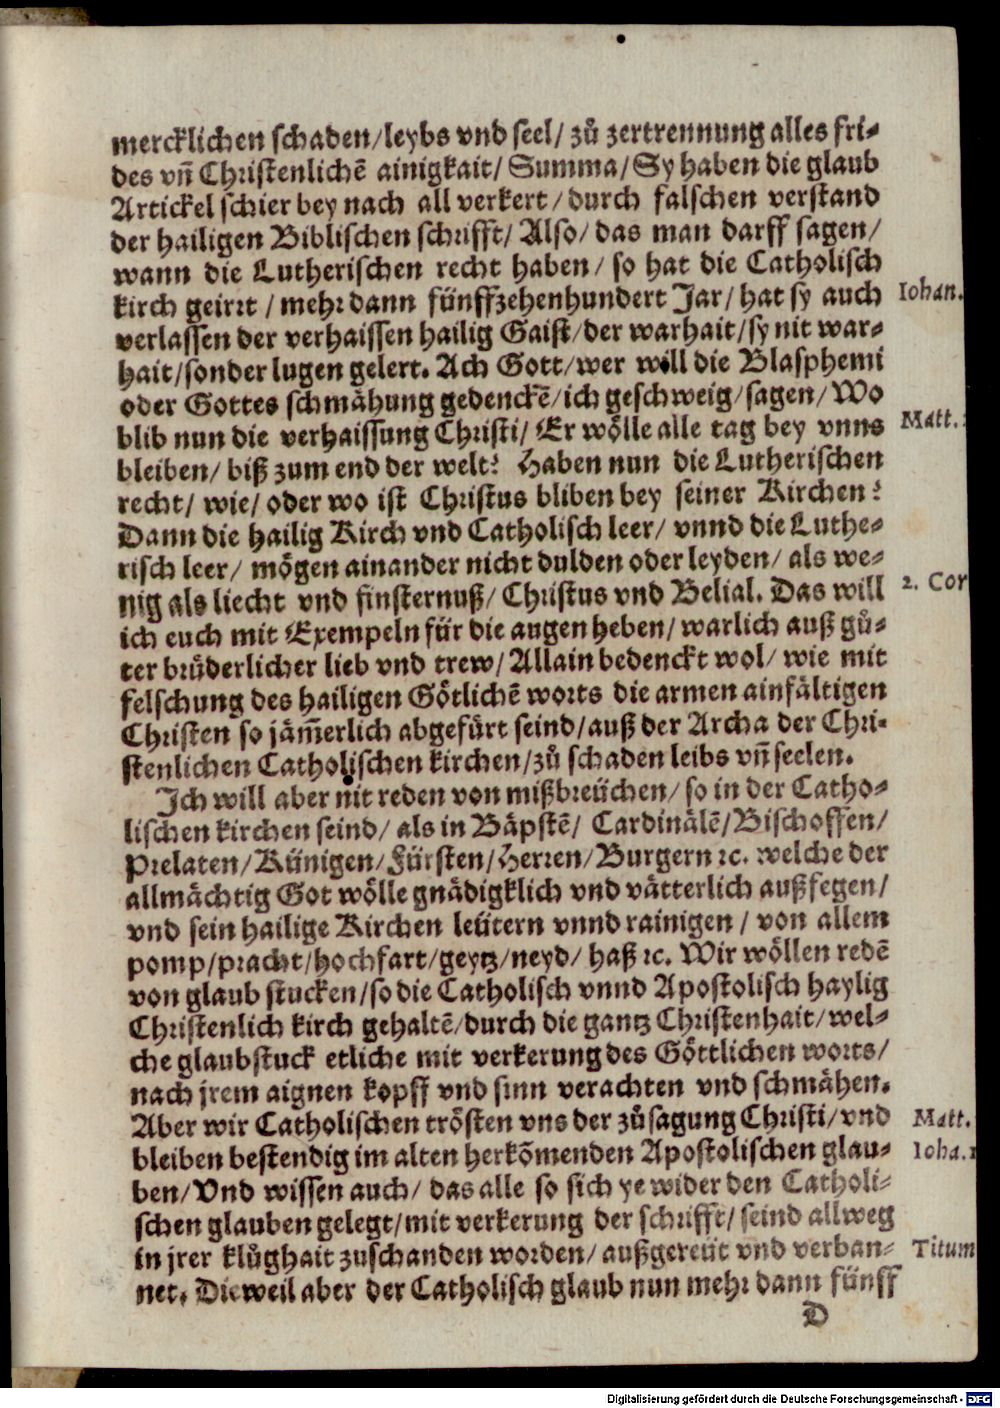 mercklichen schaden/leybs vnd seel/ zů zertrennung alles fri⸗
des vñ Christenlichẽ ainigkait/ Summa/ Sy haben die glaub
Artickel schier bey nach all verkert/ durch falschen verstand
der hailigen Biblischen schrifft/ Also/ das man darff sagen/
wann die Lutherischen recht haben/ so hat die Catholisch
kirch geirrt / mehr dann fünffzehenhundert Jar/ hat sy auch
Iohan.
verlassen der verhaissen hailig Gaist/ der warhait/ sy nit war⸗
hait/sonder lugen gelert. Ach Gott/wer will die Blasphemi
oder Gottes schmähung gedenckẽ/ich geschweig/sagen/ Wo
Matt.
blib nun die verhaissung Christi/ Er wölle alle tag bey vnns
bleiben/ biß zum end der welt? Haben nun die Lutherischen
recht/ wie/ oder wo ist Christus bliben bey seiner Kirchen?
Dann die hailig Kirch vnd Catholisch leer/ vnnd die Luthe⸗
risch leer/ mögen ainander nicht dulden oder leyden/ als we⸗
nig als liecht vnd finsternuß/ Christus vnd Belial. Das will
2. Cor
ich euch mit Exempeln für die augen heben/ warlich auß gů⸗
ter brüderlicher lieb vnd trew/ Allain bedenckt wol/ wie mit
felschung des hailigen Götlichẽ worts die armen ainfältigen
Christen so jäm̃erlich abgefürt seind/auß der Archa der Chri⸗
stenlichen Catholischen kirchen/zů schaden leibs vñ seelen.
Ich will aber nit reden von mißbreüchen/ so in der Catho⸗
lischen kirchen seind/ als in Bäpstẽ/ Cardinälẽ/Bischoffen/
Prelaten/Künigen/Fürsten/Herren/Burgern ꝛc. welche der
allmächtig Got wölle gnädigklich vnd vätterlich außfegen/
vnd sein hailige Kirchen leütern vnnd rainigen / von allem
pomp/pracht/hochfart/geytz/neyd/ haß ꝛc. Wir wöllen redẽ
von glaub stucken/so die Catholisch vnnd Apostolisch haylig
Christenlich kirch gehaltẽ/durch die gantz Christenhait/wel⸗
che glaubstuck etliche mit verkerung des Göttlichen worts/
nach jrem aignen kopff vnd sinn verachten vnd schmähen.
Aber wir Catholischen trösten vns der zůsagung Christi/vnd
Matt.
bleiben bestendig im alten herkõmenden Apostolischen glau⸗
Ioha.1
ben/ Vnd wissen auch/ das alle so sich ye wider den Catholi⸗
schen glauben gelegt/mit verkerung der schrifft/ seind allweg
in jrer klůghait zuschanden worden/ außgereüt vnd verban⸗
Titum
net. Dieweil aber der Catholisch glaub nun mehr dann fünff
D
Digitalisierung gefördert durch die Deutsche Forschungsgemeinschaft - DFG